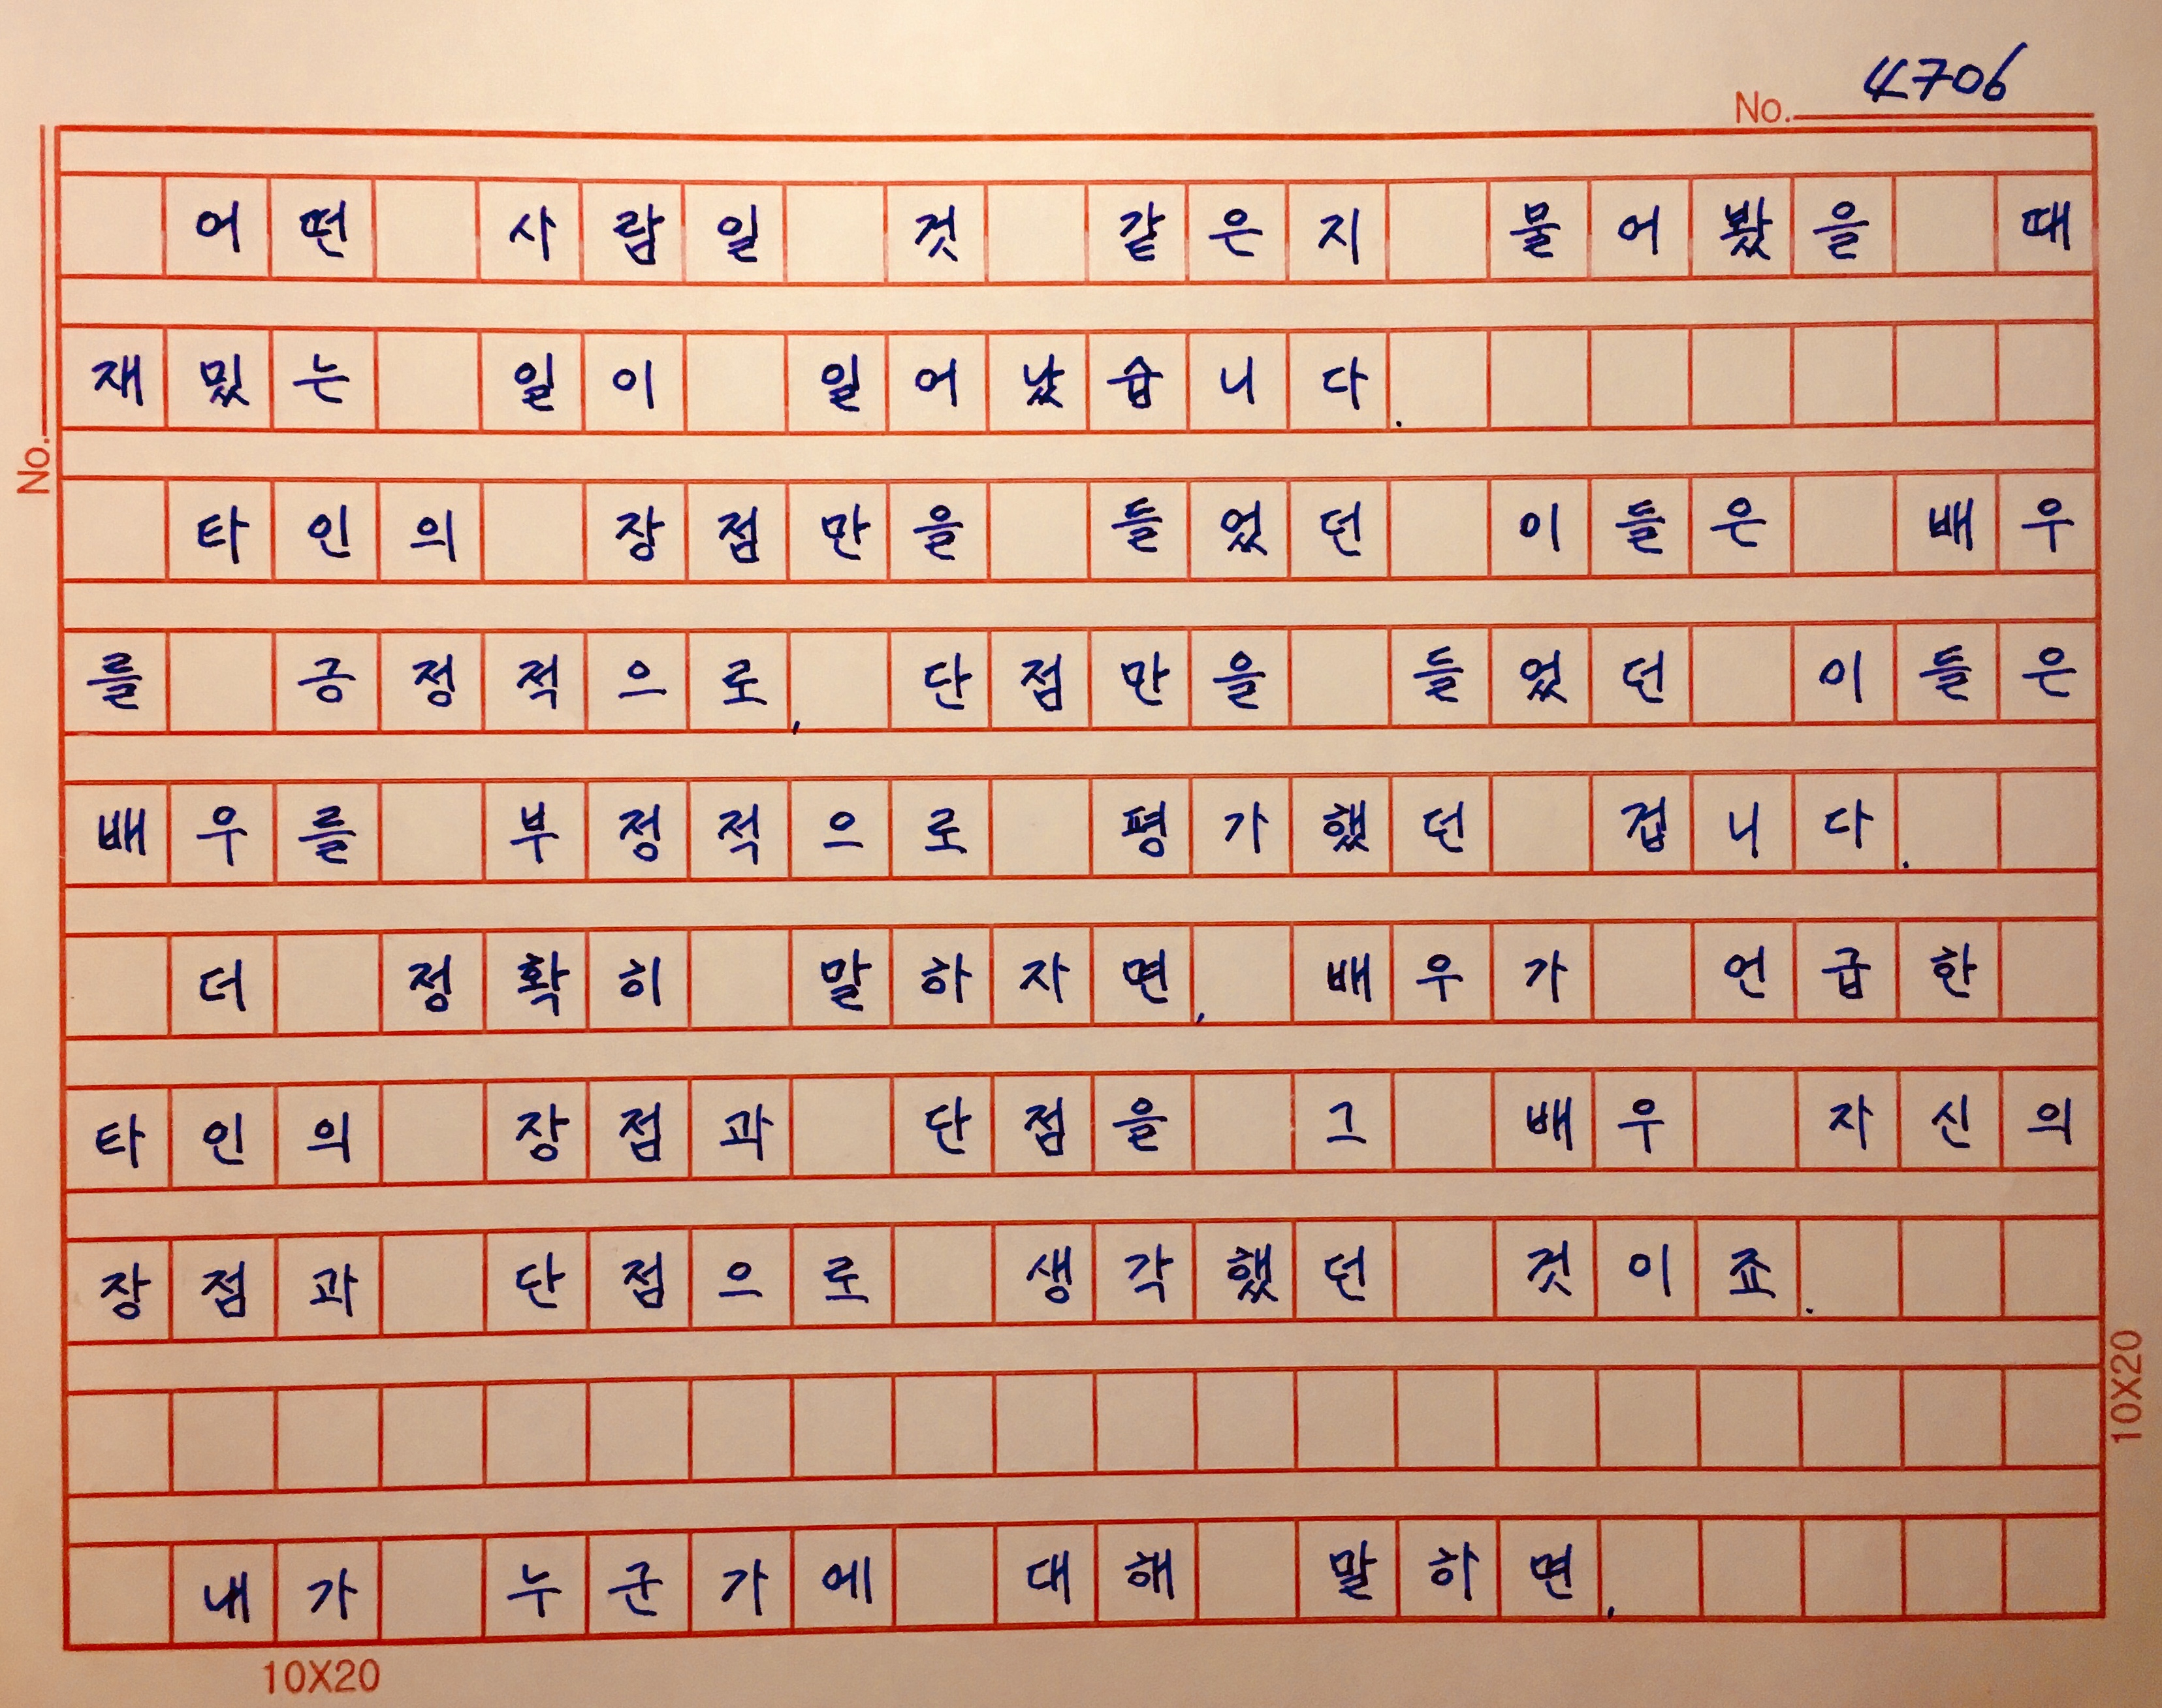 No. 4706
어떤 사람일 것 같은지 물어봤을 때
재밌는 일이 일어났습니다.
No.
타인의 장점만을 들었던 이들은 배우
를 긍정적으로, 단점만을 들었던 이들은
배우를 부정적으로 평가했던 겁니다.
더 정확히 말하자면, 배우가 언급한
타인의 장점과 단점을 그 배우 자신의
장점과 단점으로 생각했던 것이죠.
내가 누군가에 대해 말하면,
10X20
10X20